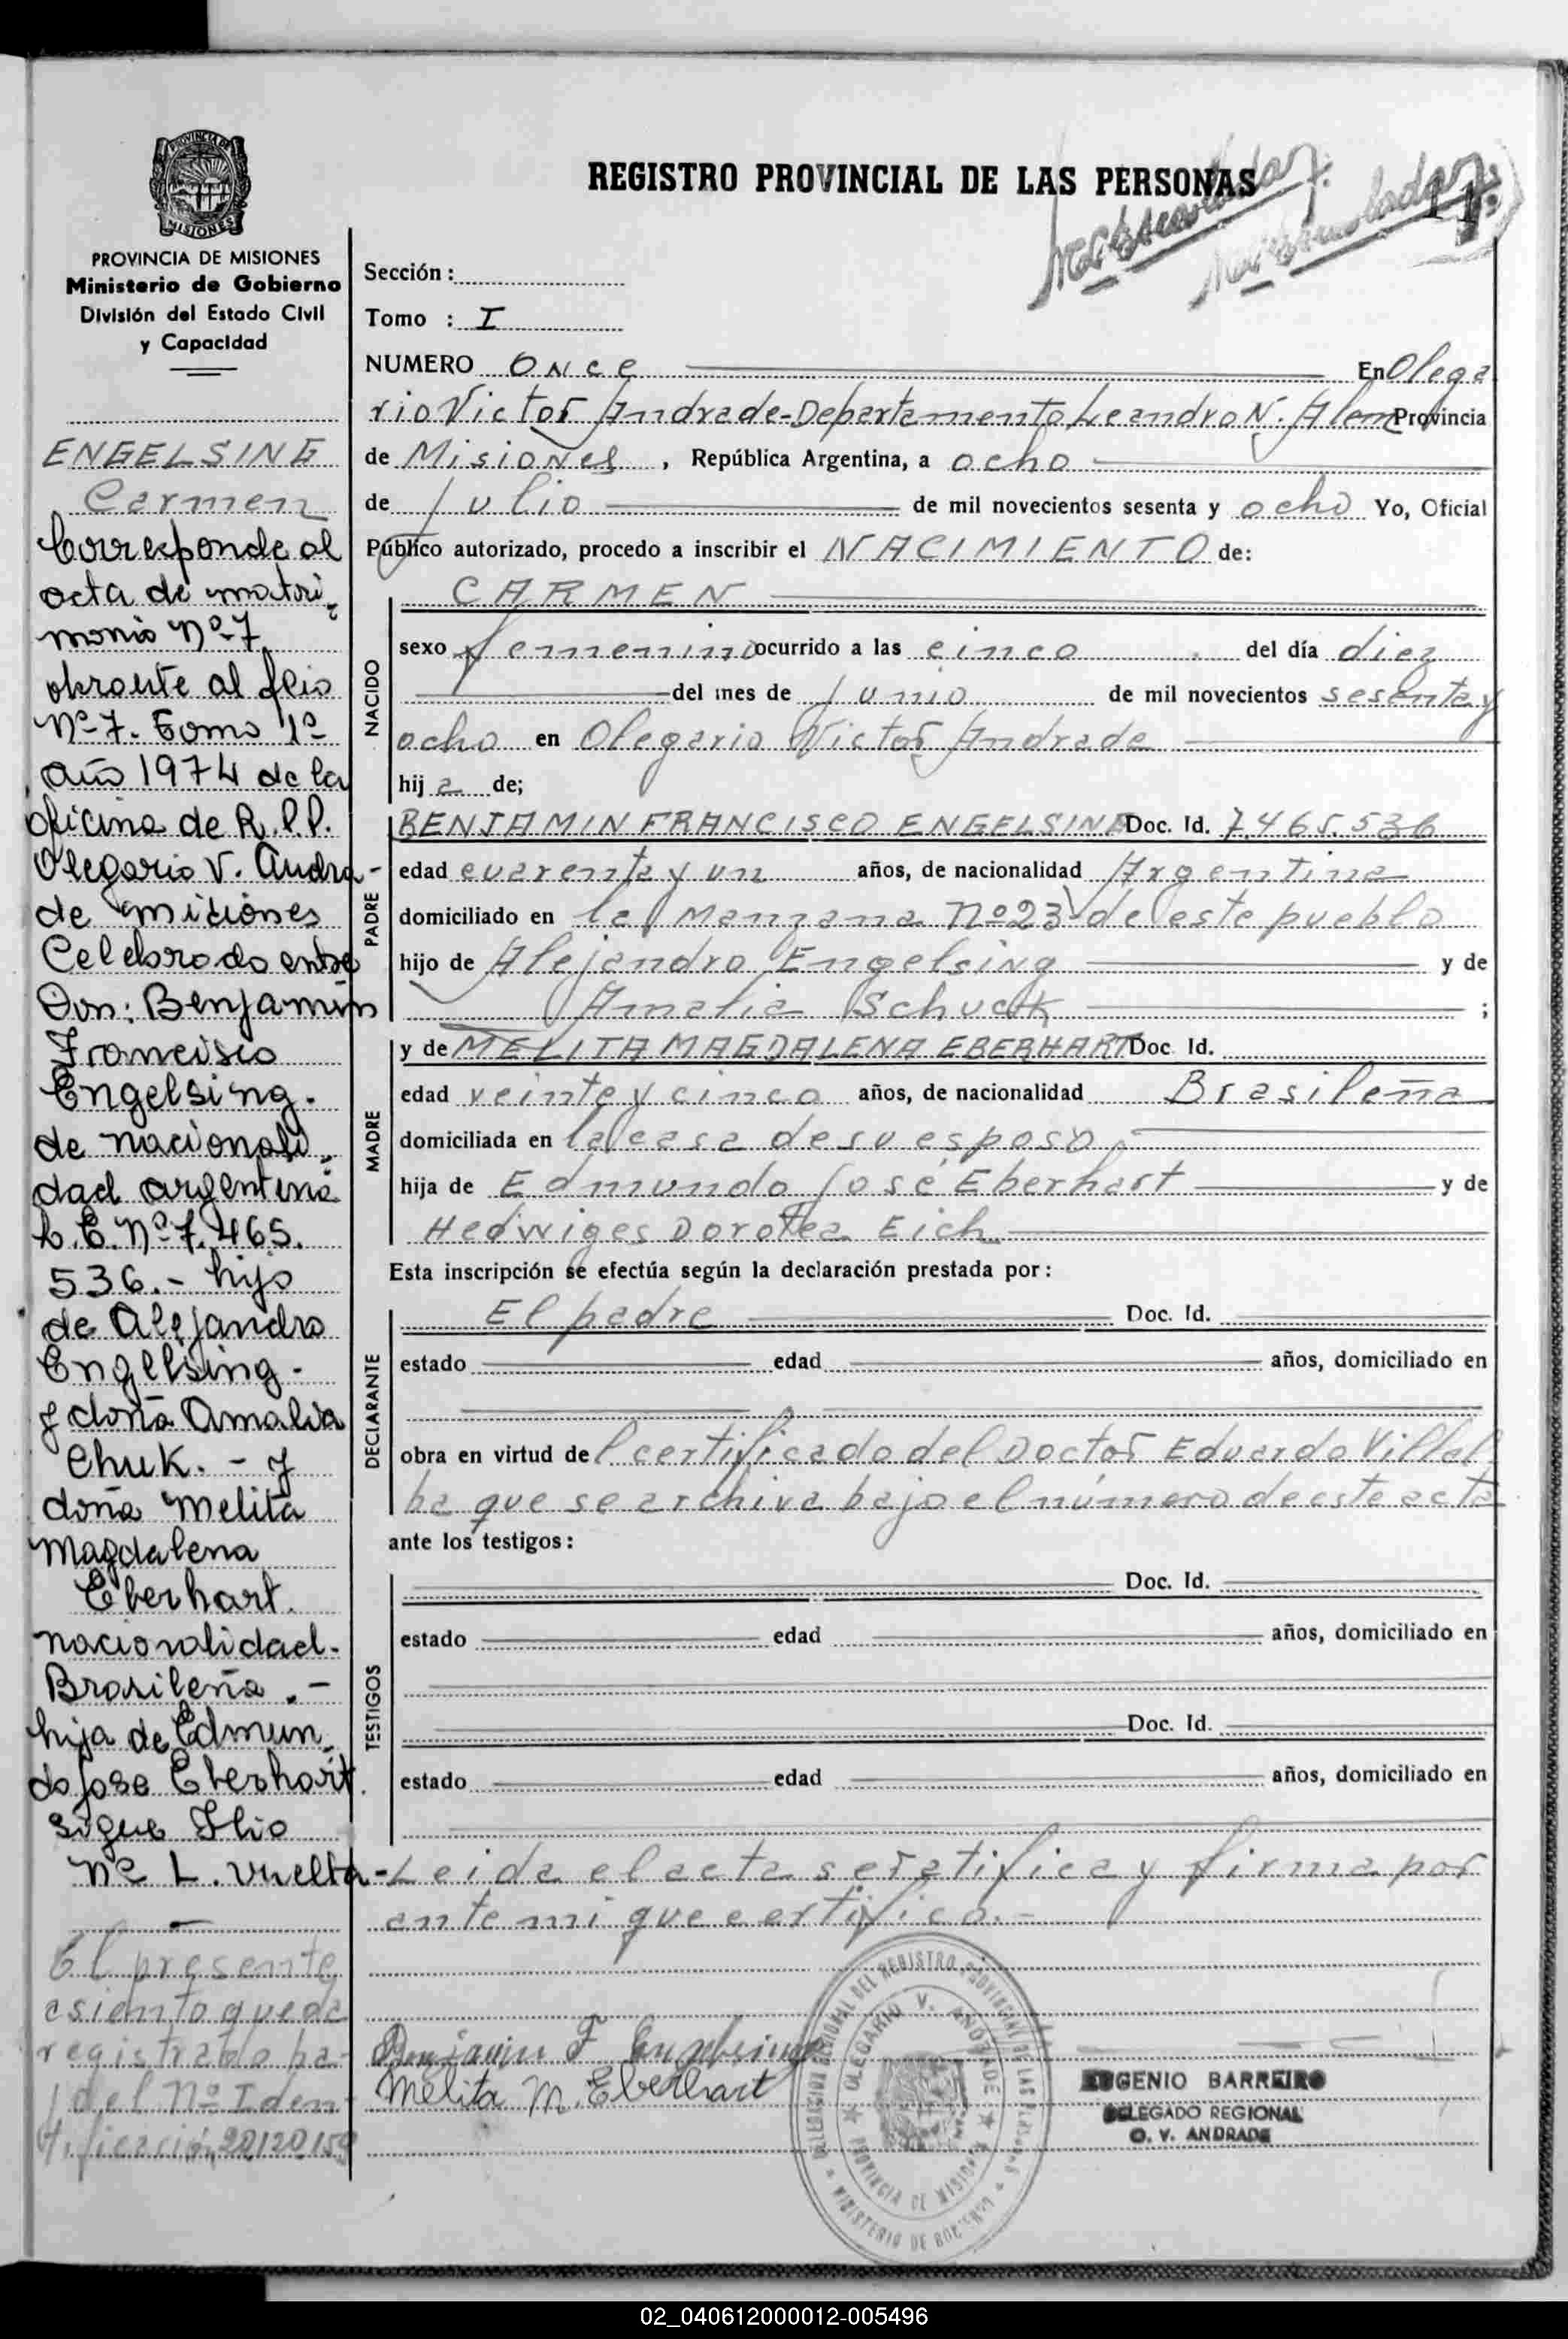 REGISTRO PROVINCIAL DE LAS PERSONAS
11
PROVINCIA DE MISIONES
Ministerio de Gobierno
División del Estado Civil
y Capacidad
ENGELSING
Carmen
Corresponde al
acta de matri-
monio Nº 7
obrante al flio
Nº 7. Tomo 1º
año 1974 de la
oficina de R.P.P.
Olegario V. Andra-
de misiones
Celebrado entre
Don: Benjamin
Francisco
Engelsing.
de nacionali-
dad argentina
L.E. Nº 7.465.
536.- hijo
de Alejandro
Engelsing-
y doña Amalia
Chuk.- y
doña Melita
Magdalena
Eberhart.
nacionalidad-
Brasileña.-
hija de Edmun-
do Jose Eberhart.
sigue flio
Nº 1. vuelta-
El presente
asiento queda
registrado ba-
jo el Nº Iden-
tificación 20120159
Sección:
Tomo : I
NUMERO Once En Olega
rio Victor Andrade-Departamento Leandro N. Alem Provincia
de Misiones, República Argentina, a ocho
de Julio de mil novecientos sesenta y ocho Yo, Oficial
Público autorizado, procedo a inscribir el NACIMIENTO de:
NACIDO
CARMEN
sexo femenino ocurrido a las cinco del día diez
del mes de Junio de mil novecientos sesenta y
ocho en Olegario Victor Andrade
hija de;
PADRE
BENJAMIN FRANCISCO ENGELSING Doc. Id. 7.465.536
edad cuarenta y un años, de nacionalidad Argentina
domiciliado en la Manzana Nº 23 de este pueblo
hijo de Alejandro Engelsing y de
Amalia Schuck ;
MADRE
y de MELITA MAGDALENA EBERHART Doc. Id.
edad veinte y cinco años, de nacionalidad Brasileña
domiciliada en la casa de su esposo
hija de Edmundo José Eberhart y de
Hedwiges Dorotea Eich
Esta inscripción se efectúa según la declaración prestada por:
DECLARANTE
El padre Doc. Id.
estado edad años, domiciliado en
obra en virtud del certificado del Doctor Eduardo Villal
ba que se archiva bajo el número de este acta
ante los testigos:
TESTIGOS
Doc. Id.
estado edad años, domiciliado en
Doc. Id.
estado edad años, domiciliado en
Leida el acta se ratifica y firma por
ante mi que certifico.-
Benjamin F Engelsing
Melita M. Eberhart
DELEGACION REGIONAL DEL REGISTRO PROVINCIAL DE LAS PERSONAS
MINISTERIO DE GOBIERNO
OLEGARIO V. ANDRADE
PROVINCIA DE MISIONES
EUGENIO BARREIRO
DELEGADO REGIONAL
O. V. ANDRADE
02_040612000012-005496